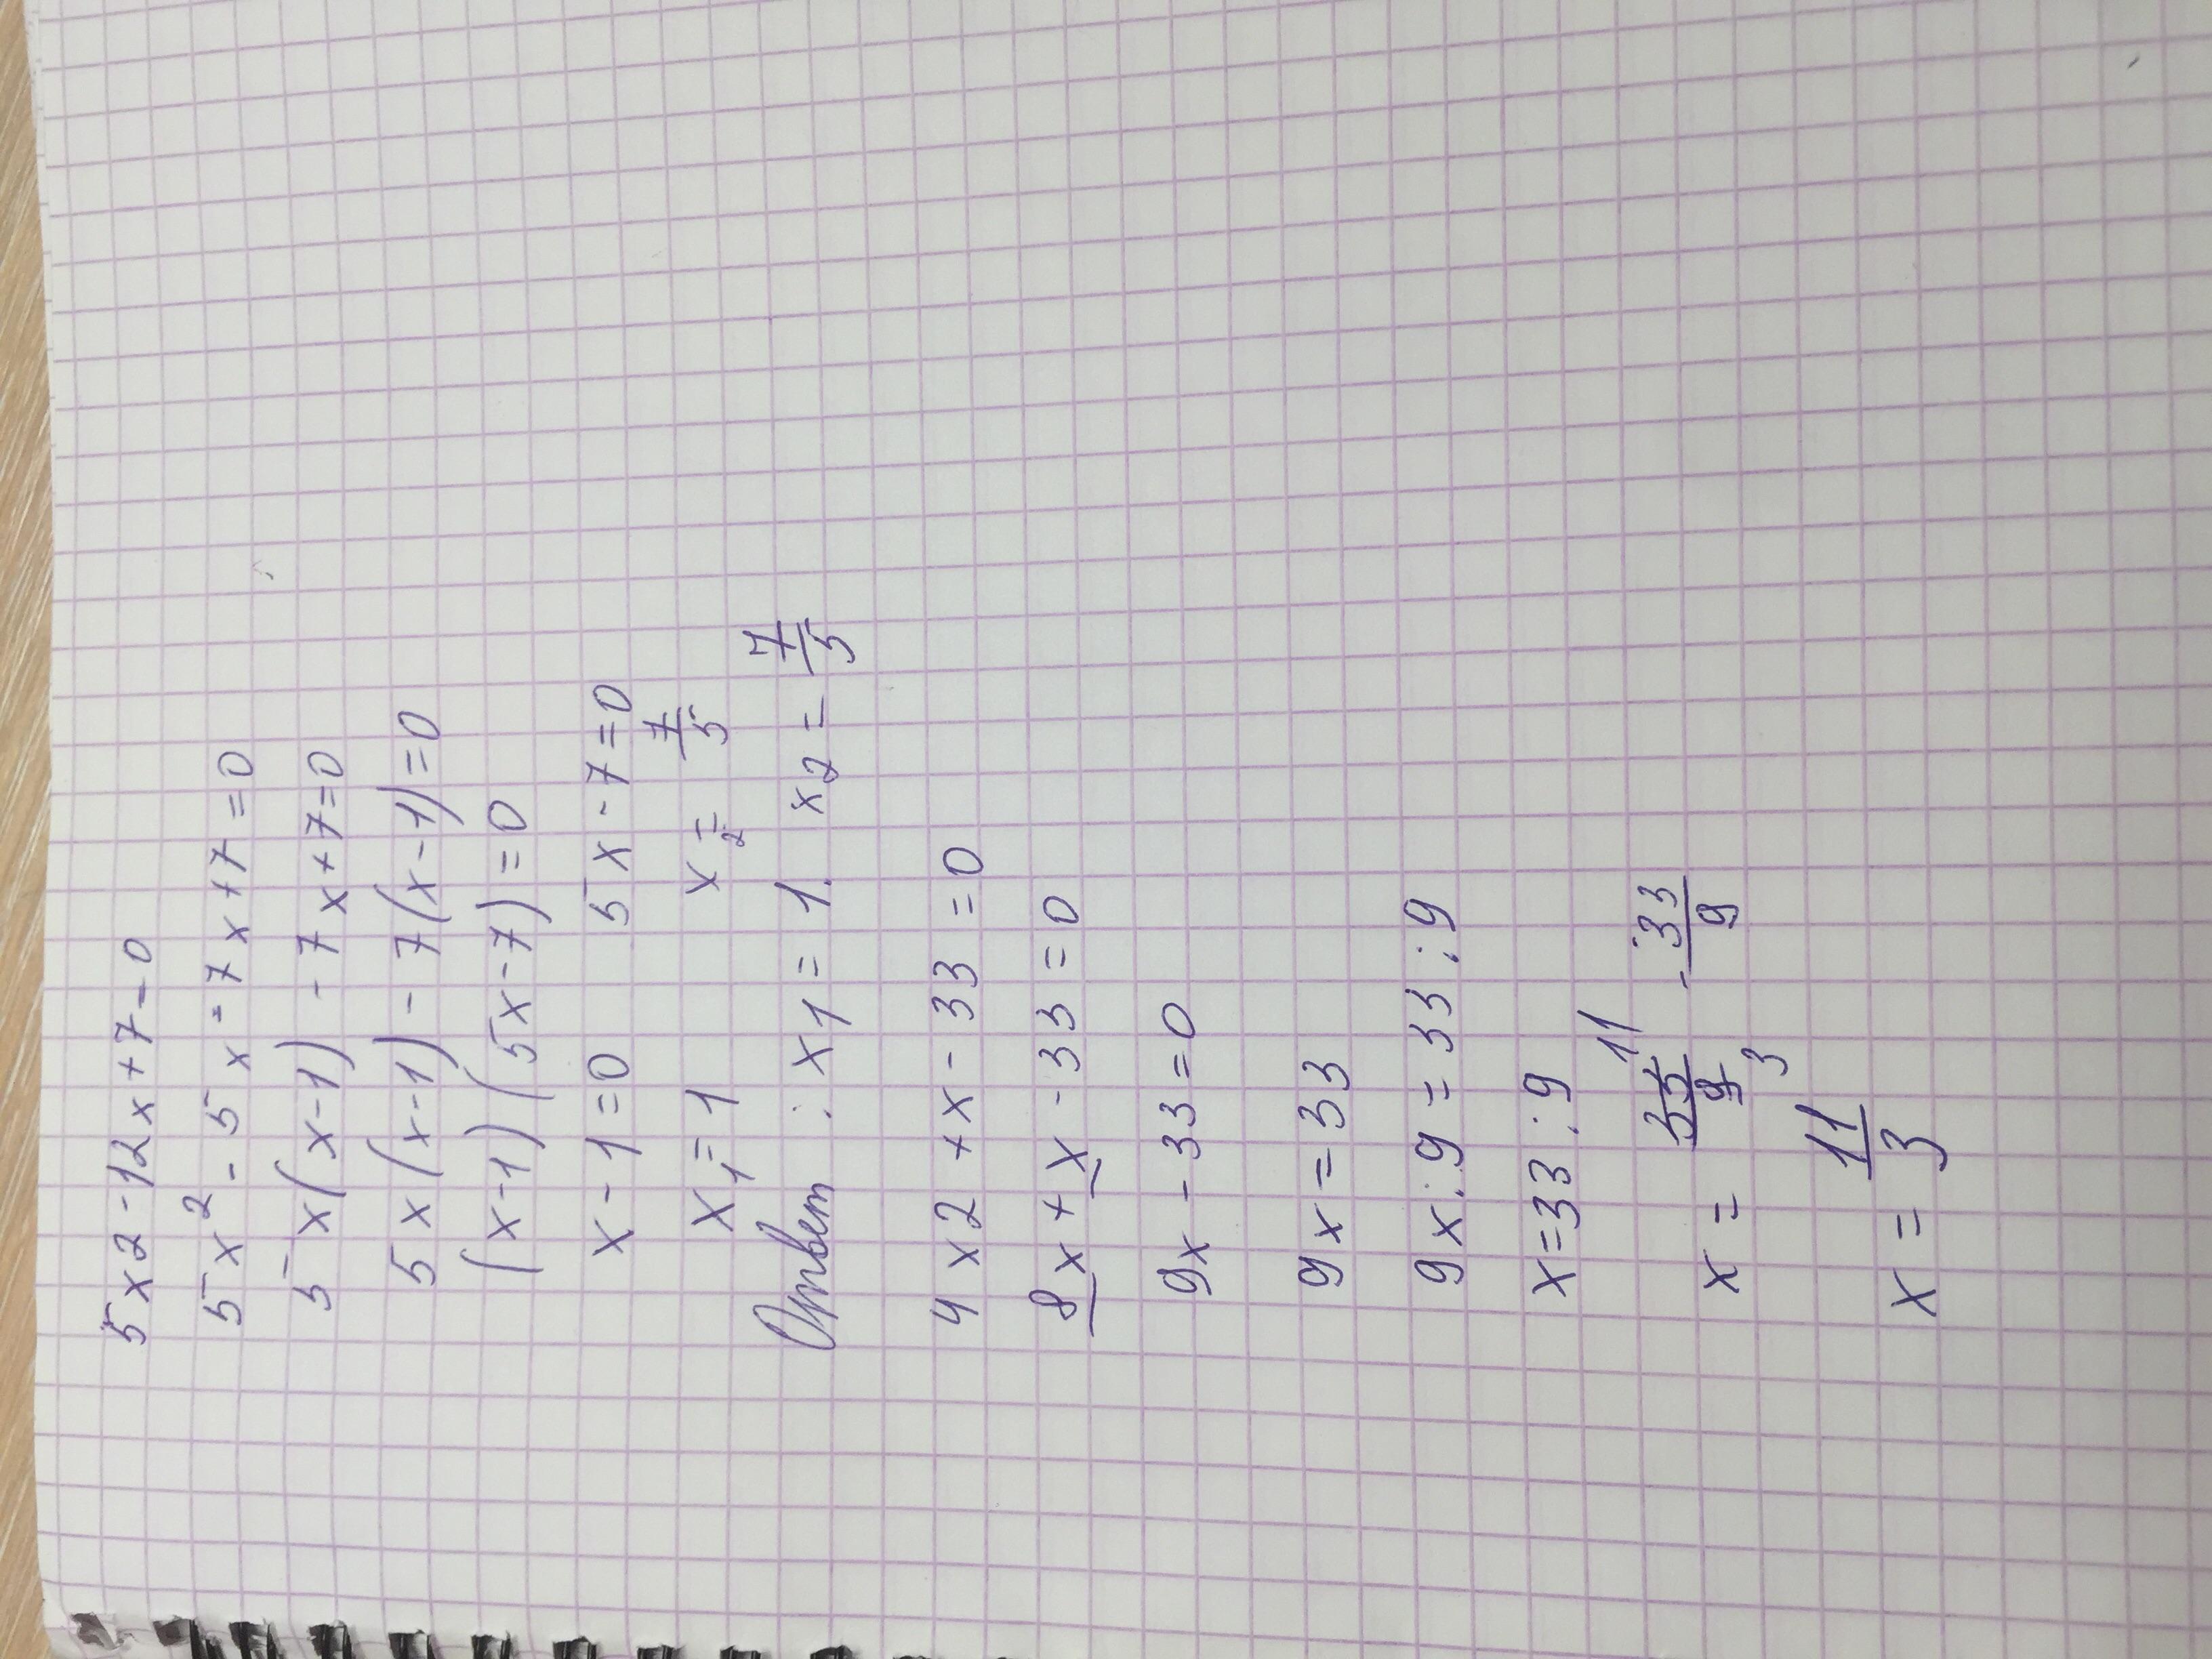 5x2-12x+7=0
5x²-5x-7x+7=0
5x(x-1)-7x+7=0
5x(x-1)-7(x-1)=0
(x-1)(5x-7)=0
x-1=0 5x-7=0
x₁=1 x₂=7/5
Ответ: x1=1. x2=7/5
4x2+x-33=0
8x+x-33=0
9x-33=0
9x=33
9x:9=33:9
x=33:9
x=33/9 11 3 -33/9
x=11/3